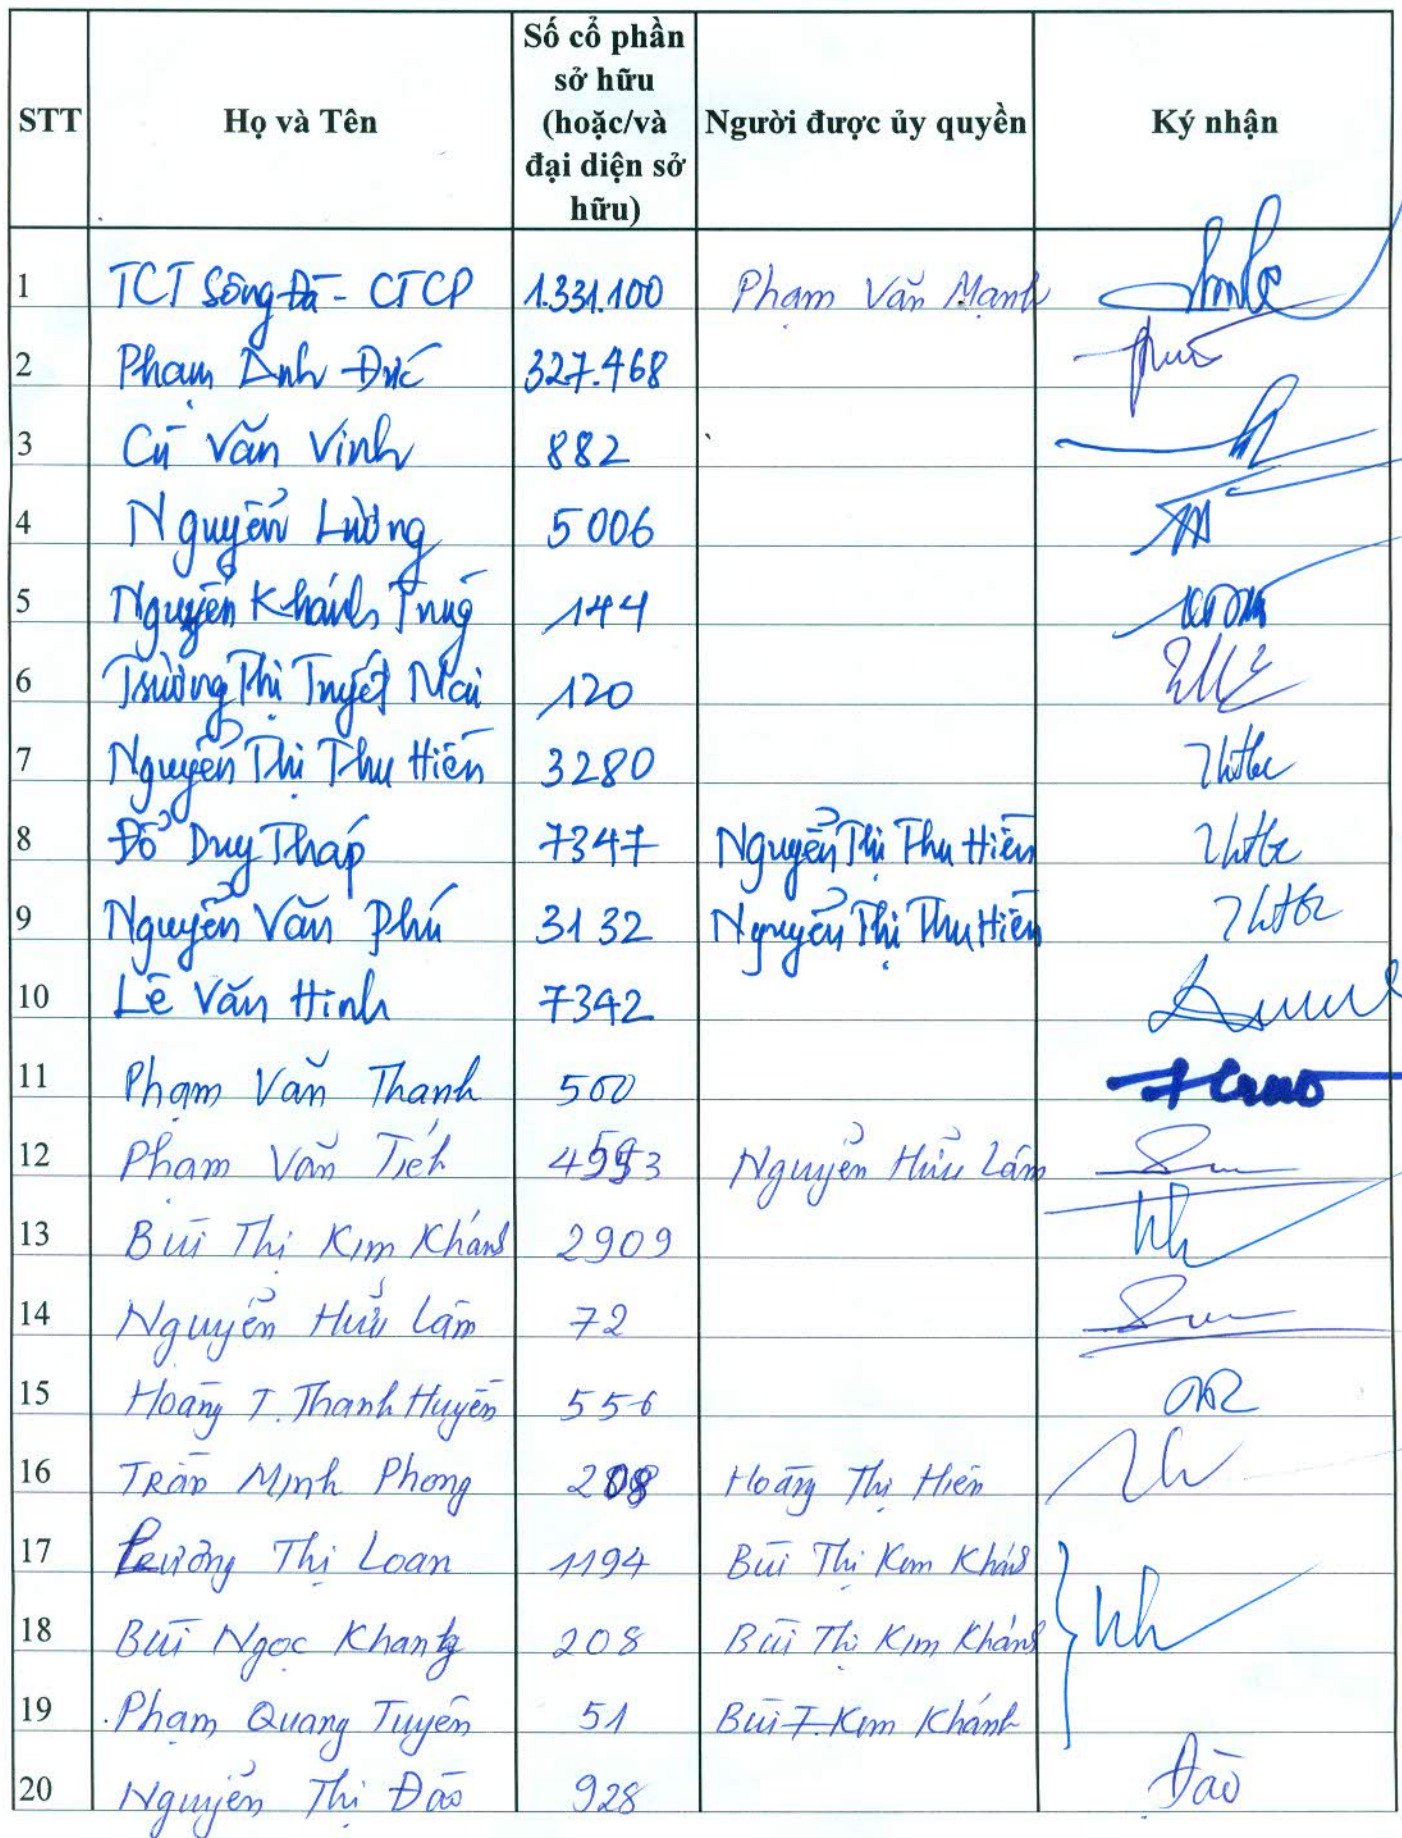 STT Họ và Tên Số cổ phần sở hữu (hoặc/và đại diện sở hữu) Người được ủy quyền Ký nhận
1 TCT Sông Đà - CTCP 1.331.100 Phạm Văn Mạnh
2 Phạm Anh Đức 327.468
3 Cù Văn Vinh 882
4 Nguyễn Lương 5006
5 Nguyễn Khánh Trung 144
6 Trương Thị Tuyết Mai 120
7 Nguyễn Thị Thu Hiền 3280
8 Đỗ Duy Tháp 7347 Nguyễn Thị Thu Hiền
9 Nguyễn Văn Phú 3132 Nguyễn Thị Thu Hiền
10 Lê Văn Hinh 7342
11 Phạm Văn Thanh 500
12 Phạm Văn Nguyễn Hữu Lâm
13 Bùi Thị Kim Khánh 2909
14 Nguyễn Hữu Lâm 72
15 Hoàng T. Thanh Huyền 556
16 Trần Minh Phong 208 Hoàng Thị Hiền
17 Thị Loan 1194 Bùi Thị Kim Khánh
18 Bùi Ngọc Khang 208 Bùi Thị Kim Khánh
19 Phạm Quang Tuyến 51 Bùi T. Kim Khánh
20 Nguyễn Thị Đào 928 Đào